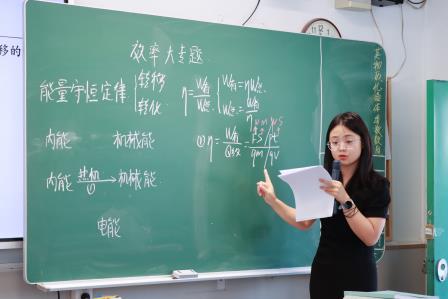 移的
效率大专题
能量守恒定律 { 转移 转化
η = W有/W总 { W有 = ηW总 W总 = W有/η
内能 机械能
① η = W有/Q放 = FS/qm / Pt/qV
内能 热机 ① 机械能
电能